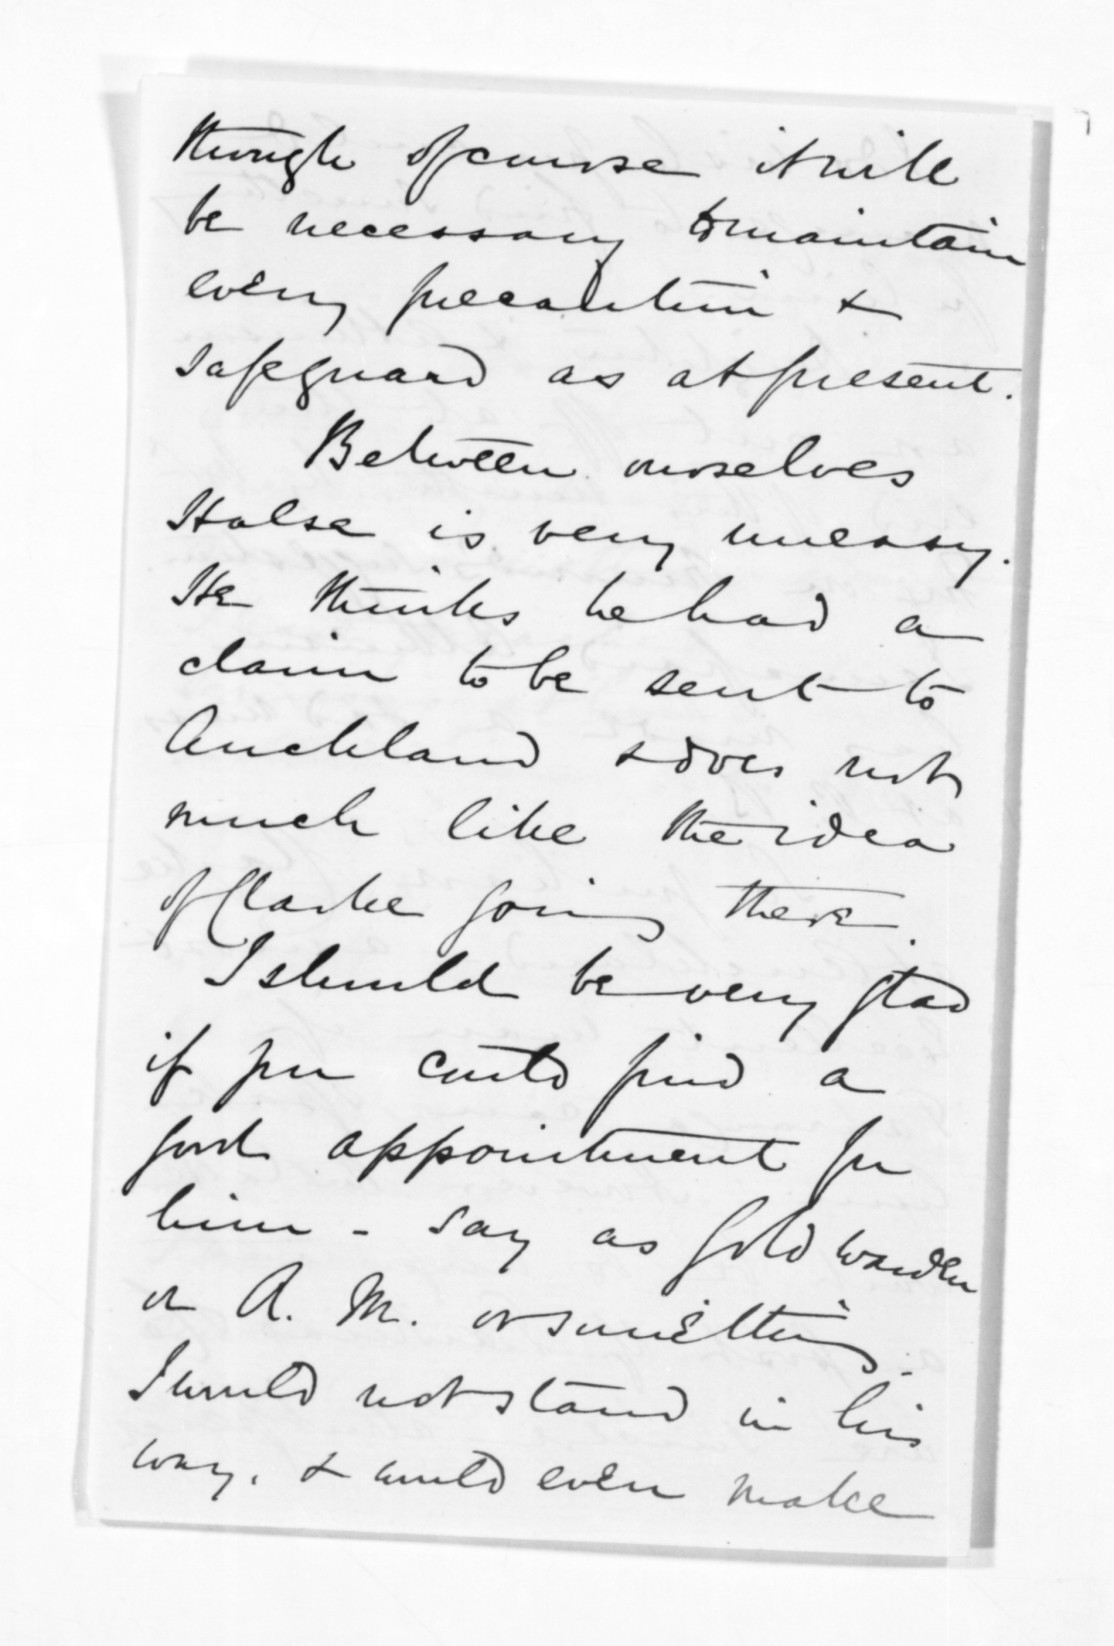 though of course it will
be necessary to maintain
every precaution &
safeguard as at present.
Between ourselves
Halse is very uneasy.
He thinks he had a
claim to be sent to
Auckland & does not
much like the idea
of Clarke going there.
I should be very glad
if you could find a
good appointment for
him - say as Gold warden
or R. M. or something.
I would not stand in his
way, & would even make